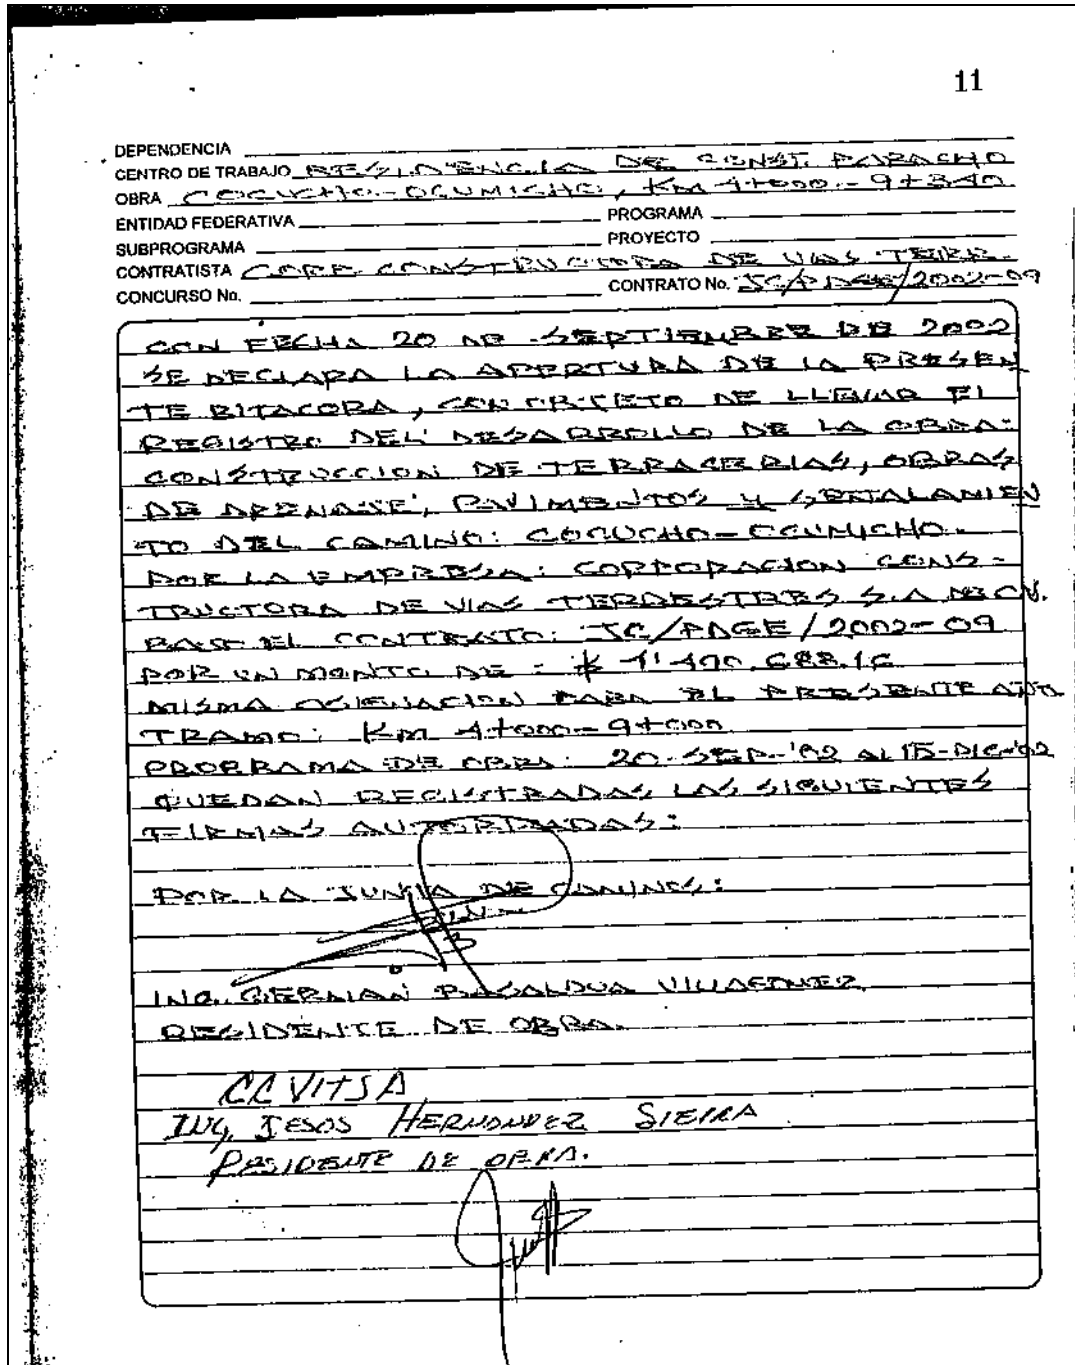 11
DEPENDENCIA
CENTRO DE TRABAJO RESIDENCIA DE CONST. PARACHO
OBRA COCUCHO-OCUMICHO, KM 4+000-9+340
ENTIDAD FEDERATIVA PROGRAMA
SUBPROGRAMA PROYECTO
CONTRATISTA CORP. CONSTRUCTORA DE VIAS TERR.
CONCURSO No. CONTRATO No. JC/PDGE/2002-09
CON FECHA 20 DE SEPTIEMBRE DE 2002
SE DECLARA LA APERTURA DE LA PRESEN
TE BITACORA, CON OBJETO DE LLEVAR EL
REGISTRO DEL DESARROLLO DE LA OBRA:
CONSTRUCCION DE TERRACERIAS, OBRAS
DE DRENAJE, PAVIMENTOS Y SEÑALAMIEN
TO DEL CAMINO: COCUCHO-OCUMICHO.
POR LA EMPRESA: CORPORACION CONS-
TRUCTORA DE VIAS TERRESTRES S.A DE CV.
BAJO EL CONTRATO: JC/PDGE/2002-09
POR UN MONTO DE:
MISMA ASIGNACION PARA EL PRESENTE AÑO
TRAMO: KM 4+000-9+000
PROGRAMA DE OBRA: 20-SEP-'02 AL 15-DIC-'02
QUEDAN REGISTRADAS LAS SIGUIENTES
FIRMAS AUTORIZADAS:
POR LA JUNTA DE CAMINOS:
ING. GERMAN BASALDUA VILLAGOMEZ
RESIDENTE DE OBRA.
CCVITSA
ING. JESUS HERNANDEZ SIERRA
RESIDENTE DE OBRA.